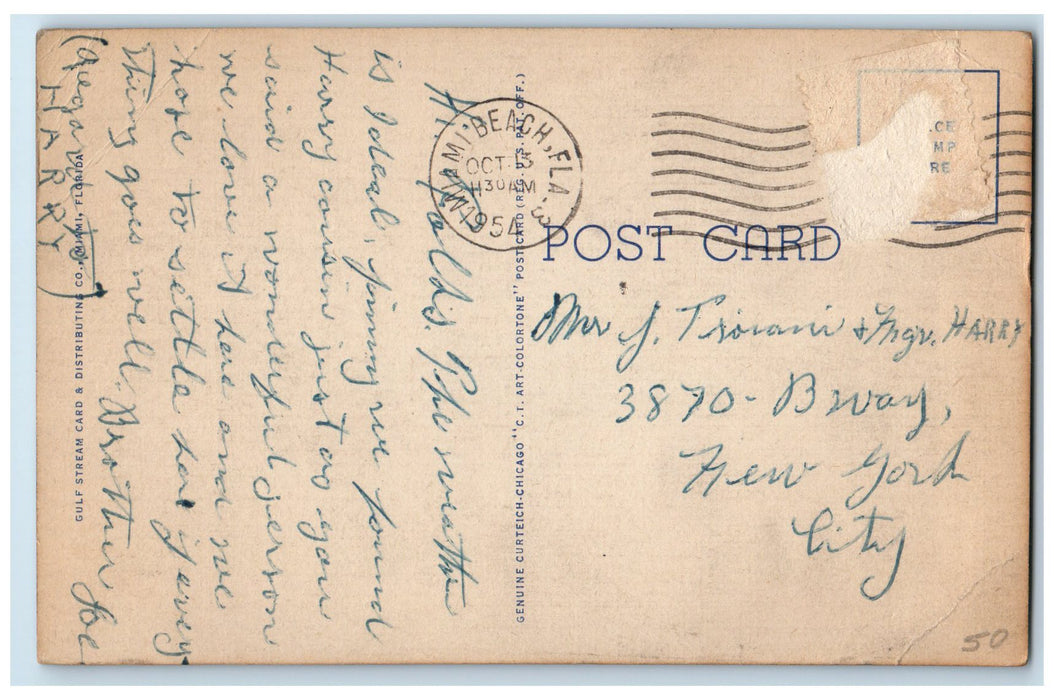 Hi. Folks. The weather
is Ideal. jimmy we found
Harry cousin just as you
said a wonderful person
we love it here and we
hope to settle here if every
thing goes well. Brother Joe
(Regards to
HARRY)
GULF STREAM CARD & DISTRIBUTING CO., MIAMI, FLORIDA
GENUINE CURTEICH-CHICAGO "C.T. ART-COLORTONE" POSTCARD (REG. U.S. PAT. OFF.)
MIAMI BEACH, FLA. 3
OCT
1130 AM
1954
CE
MP
RE
POST CARD
Mr J. Troiani & Mgr. HARRY
3870 - Bway,
New York
City
50